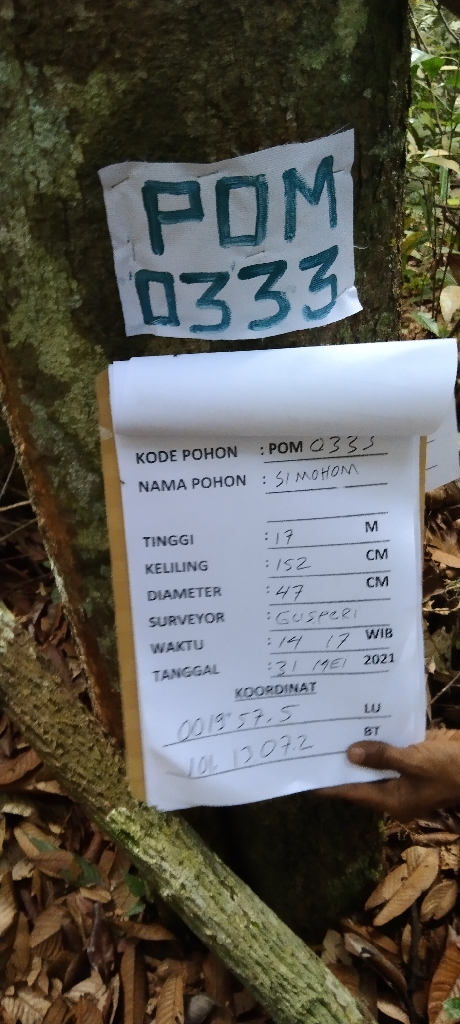 POM
0333
KODE POHON : POM 0333
NAMA POHON : SIMOHOM
TINGGI : 17 M
KELILING : 152 CM
DIAMETER : 47 CM
SURVEYOR : GUSPERI
WAKTU : 14 17 WIB
TANGGAL : 31 MEI 2021
KOORDINAT
0019"57.5 LU
101 1307.2 BT